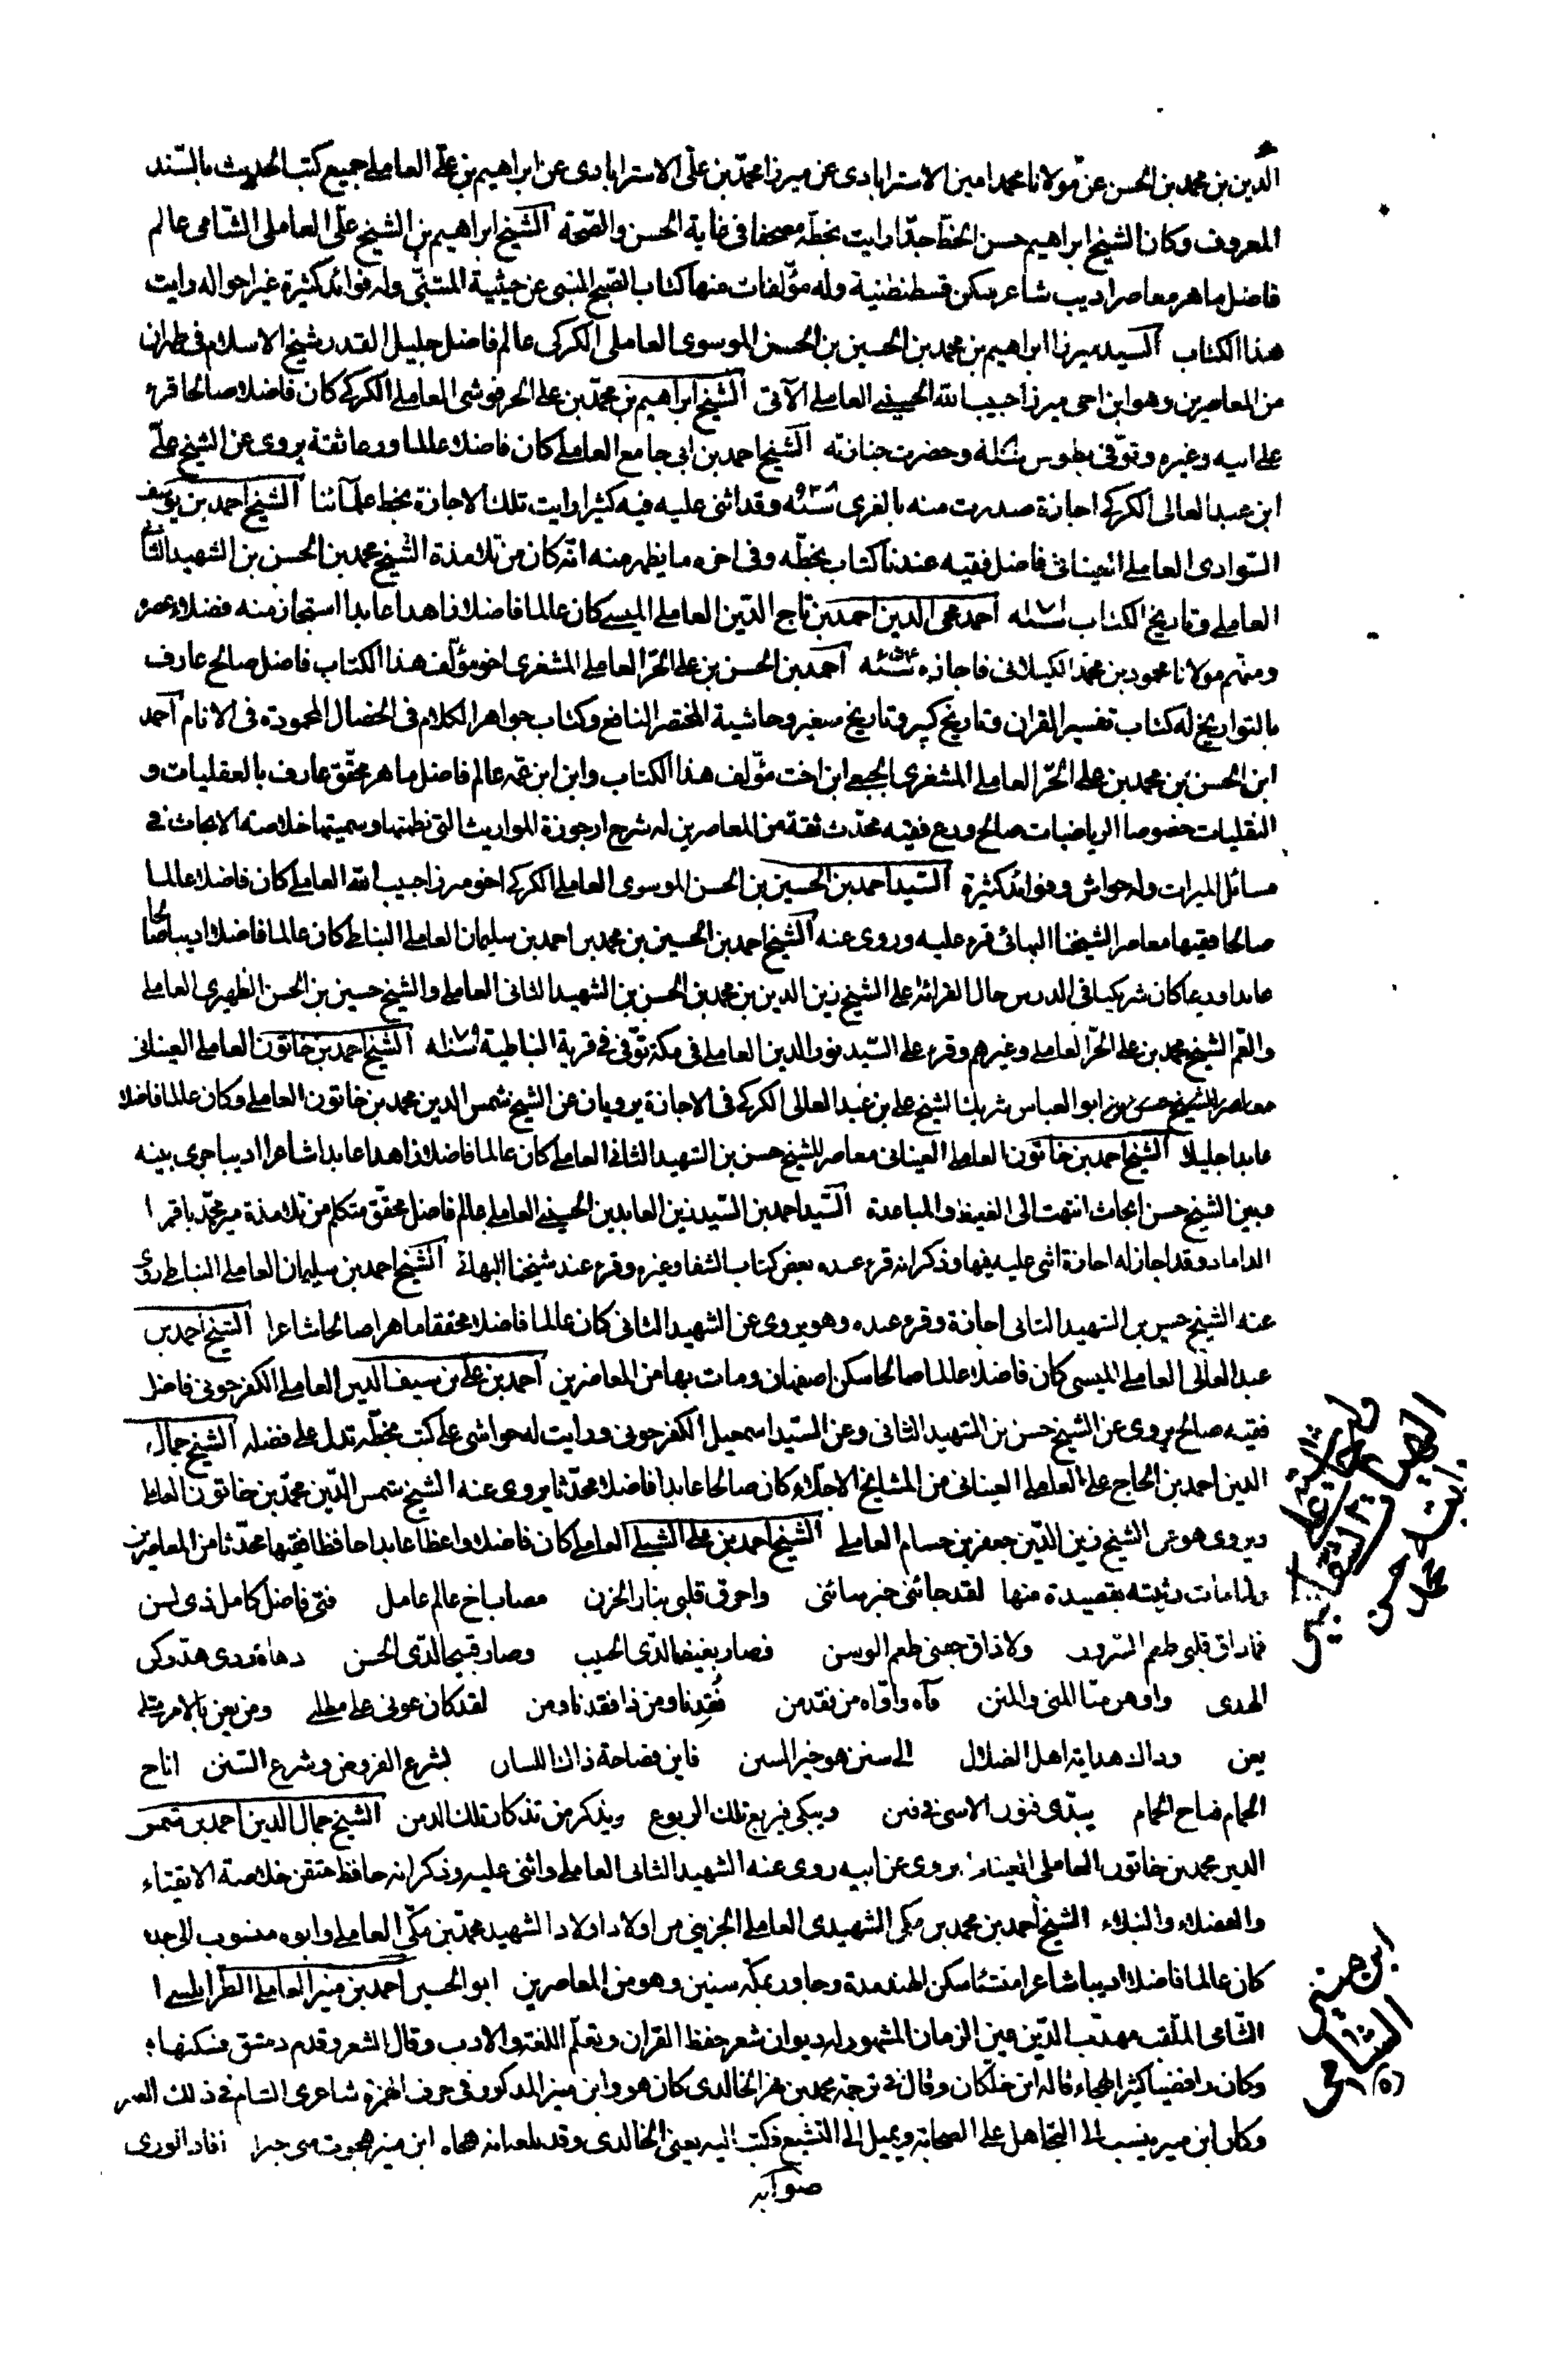 الدين بن محمد بن الحسن عن مولانا محمد امين الاسترابادى عن ميرزا محمد بن على الاسترابادى عن ابراهيم بن على العاملي جميع كتب الحديث بالسند
المعروف وكان الشيخ ابراهيم حسن الخط جدا رايت بخطه مصحفا فى غاية الحسن والصحة الشيخ ابراهيم بن الشيخ على العاملى الشامى عالم
فاضل ماهر معاصر اديب شاعر سكن قسطنطنية وله مؤلفات منها كتاب الصبح المنبى عن حيثية المتنبى وله فوائد كثيرة غير احواله رايت
هذا الكتاب السيد ميرزا ابراهيم بن محمد بن الحسين بن الحسن الموسوى العاملى الكركى عالم فاضل جليل القدر شيخ الاسلام فى طهران
من المعاصرين وهو ابن اخى ميرزا حبيب الله الحسينى العاملي الآتى الشيخ ابراهيم بن محمد بن على الحرفوشى العاملي الكركي كان فاضلا صالحا قرء
على ابيه وغيره وتوفى بطوس وحضرت جنازته الشيخ احمد بن ابى جامع العاملي كان فاضلا عالما ورعا ثقة يروى عن الشيخ على
ابن عبد العالى الكركي اجازة صدرت منه بالغرى سنة ٩٢٨ وقد اثنى عليه فيه كثيرا رايت تلك الاجازة بخط علمآئنا الشيخ احمد بن يوسف
السوادى العاملي العينانى فاضل فقيه عندنا كتاب بخطه وفى اخره ما يظهر منه انه كان من تلامذة الشيخ محمد بن الحسن بن الشهيد الثانى
العاملي وتاريخ الكتاب احمد محى الدين احمد بن تاج الدين العاملي الميسي كان عالما فاضلا زاهدا عابدا استجاز منه فضلاء عصره
ومنهم مولانا محمود بن محمد الكيلانى فاجازه احمد بن الحسن بن على الحر العاملي المشغرى اخو مؤلف هذا الكتاب فاضل صالح عارف
بالتواريخ له كتاب تفسير القران وتاريخ كبير وتاريخ صغير وحاشية المختصر النافع وكتاب جواهر الكلام فى الخصال المحمودة فى الانام احمد
ابن الحسن بن محمد بن على الحر العاملي المشغرى الجبعي ابن اخت مؤلف هذا الكتاب وابن ابن عمه عالم فاضل ماهر محقق عارف بالعقليات و
النقليات خصوصا الرياضيات صالح ورع فقيه محدث ثقة من المعاصرين له شرح ارجوزة المواريث التى نظمتها وسميتها خلاصة الابحاث فى
مسائل الميراث وله حواش وفوائد كثيرة السيد احمد بن الحسين بن الحسن الموسوى العاملي الكركي اخو ميرزا حبيب الله العاملي كان فاضلا عالما
صالحا فقيها معاصرا لشيخنا البهائى قرء عليه وروى عنه الشيخ احمد بن الحسين بن محمد بن احمد بن سليمان العاملي النباطي كان عالما فاضلا اديبا صالحا
عابدا ورعا كان شريكنا فى الدرس حال القرائة على الشيخ زين الدين بن محمد بن الحسن بن الشهيد الثانى العاملي والشيخ حسين بن الحسن الظهيرى العاملي
والعم الشيخ محمد بن على الحر العاملي وغيرهم وقرء على السيد نور الدين العاملي فى مكة توفى فى قرية النباطية سنة ١٠٧٩ الشيخ احمد بن خاتون العاملي العينانى
ابو العباس شريك الشيخ على بن عبد العالى الكركي فى الاجازة يرويان عن الشيخ شمس الدين محمد بن خاتون العاملي وكان عالما فاضلا
عابدا جليلا الشيخ احمد بن خاتون العاملي العينانى معاصر للشيخ حسن بن الشهيد الثانى العاملي كان عالما فاضلا زاهدا عابدا شاعرا اديبا جرى بينه
وبين الشيخ حسن ابحاث انتهت الى الغيظ والمباعدة السيد احمد بن السيد زين العابدين الحسينى العاملي عالم فاضل محقق متكلم من تلامذة مير محمد باقر ا
الداماد وقد اجاز له اجازة اثنى عليه فيها وذكر انه قرء عنده بعض كتاب الشفا وغيره وقرء عند شيخنا البهائى الشيخ احمد بن سليمان العاملي النباطي روى
عنه الشيخ حسن بن الشهيد الثانى اجازة وقرء عنده وهو يروى عن الشهيد الثانى كان عالما فاضلا محققا ماهرا صالحا شاعرا الشيخ احمد بن
عبد العالى العاملي الميسى كان فاضلا عالما صالحا سكن اصفهان ومات بها من المعاصرين احمد بن على بن سيف الدين العاملي الكفرحونى فاضل
فقيه صالح يروى عن الشيخ حسن بن الشهيد الثانى وعن السيد اسمعيل الكفرحونى ورايت له حواشى على كتب بخطه تدل على فضله الشيخ جمال
الدين احمد بن الحاج على العاملي العينانى من المشايخ الاجلاء كان صالحا عابدا فاضلا محدثا يروى عنه الشيخ شمس الدين محمد بن خاتون العاملي
ويروى هو عن الشيخ زين الدين جعفر بن حسام العاملي الشيخ احمد بن على الشبيلي العاملي كان فاضلا واعظا عابدا حافظا فقيها محدثا من المعاصرين
ولما مات رثيته بقصيدة منها لقد جائنى خبر سائنى واحرق قلبى بنار الحزن مصاب اخ عالم عامل فتى فاضل كامل ذى لسن
فما راق قلبى طعم السرور ولا ذاق جفنى طعم الوسن فصار بغيضا لدى الحبيب وصار قبيحا لدى الحسن دهاه ردى هد ركن
الهدى واوهن منا المنى والمنن فآه واواه من فقد من فقدنا ومن ذا فقدنا ومن لقد كان عونى على مطلبى ومن يعن بالامر مثله
يعن هداية اهل الضلال الى سنن هو خير السنن فاين فصاحة ذاك اللسان لشرع الفروض وشرع السنن اناح
الحمام فناح الحمام يبدى فنون الاسى فى فنن ويبكى فيربع تلك الربوع ويذكر من تذكار تلك الدمن الشيخ جمال الدين احمد بن شمس
الدين محمد بن خاتون العاملى العينانى يروى عن ابيه روى عنه الشهيد الثانى العاملي واثنى عليه وذكر انه حافظ متقن خلاصة الاتقياء
والفضلاء والنبلاء الشيخ احمد بن محمد بن مكى الشهيدى العاملي الجزينى من اولاد اولاد الشهيد محمد بن مكى العاملي وابوه منسوب الى جده
كان عالما فاضلا اديبا شاعرا منشئا سكن الهند مدة وجاور بمكة سنين وهو من المعاصرين ابو الحسين احمد بن منير العاملي الطرابلسى ا
الشامى الملقب مهذب الدين عين الزمان المشهور له ديوان شعر حفظ القران وتعلم اللغة والادب وقال الشعر وقدم دمشق فسكنها
وكان رافضيا كثير الهجاء قاله ابن خلكان وقال فى ترجمة محمد بن نصر الخالدى كان هو وابن منير المذكور فى حرف الهمزة شاعرى الشام فى ذلك العصر
وكان ابن منير ينسب الى التحامل على الصحابة ويميل الى التشيع فكتب اليه يعنى الخالدى وقد بلغه انه هجاه ابن منير هجوت منى حبرا افاد الورى
صوابه
ابن حسن
الشامى